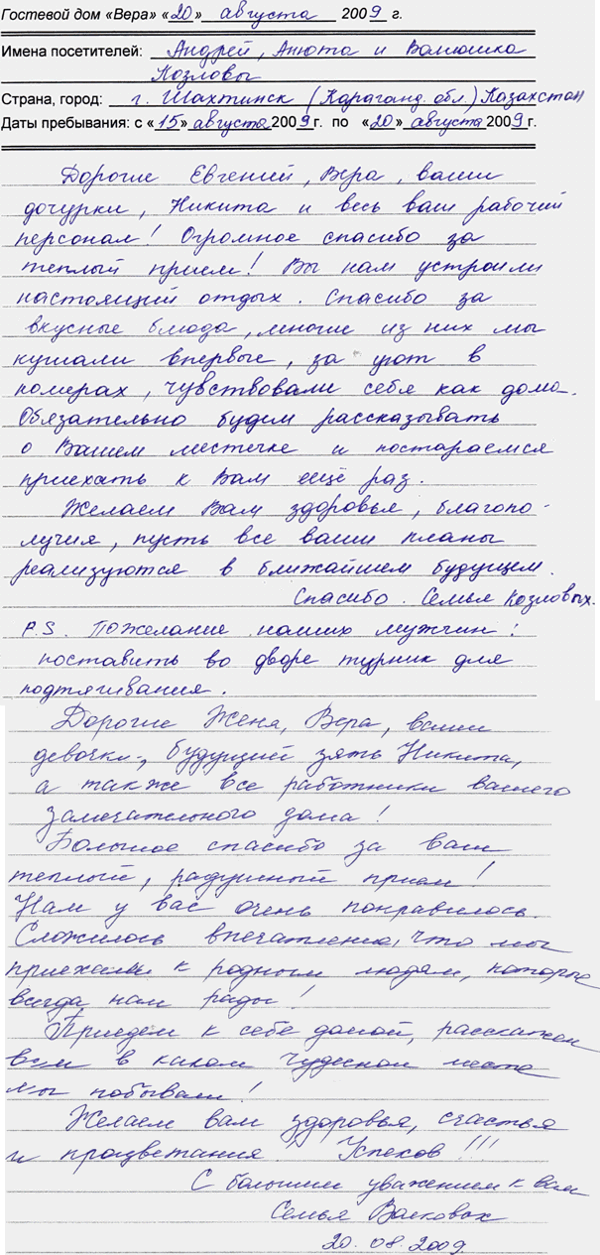 Гостевой дом «Вера» «20» августа 2009 г.
Имена посетителей: Андрей, Анюта и Валюшка
Козловы
Страна, город: г. Шахтинск (Караганд. обл.) Казахстан
Даты пребывания: с «15» августа 2009 г. по «20» августа 2009 г.
Дорогие Евгений, Вера, ваши
дочурки, Никита и весь ваш рабочий
персонал! Огромное спасибо за
теплый прием! Вы нам устроили
настоящий отдых. Спасибо за
вкусные блюда, многие из них мы
кушали впервые, за уют в
номерах, чувствовали себя как дома.
Обязательно будем рассказывать
о Вашем местечке и постараемся
приехать к Вам ещё раз.
Желаем Вам здоровья, благопо-
лучия, пусть все ваши планы
реализуются в ближайшем будущем.
Спасибо. Семья Козловых.
P.S. Пожелание наших мужчин:
поставить во дворе турник для
подтягивания.
Дорогие Женя, Вера, ваши
девочки, будущий зять Никита,
а также все работники вашего
замечательного дома!
Большое спасибо за ваш
теплый, радушный прием!
Нам у вас очень понравилось.
Сложилось впечатление, что мы
приехали к родным людям, которые
всегда нам рады!
Приедем к себе домой, расскажем
всем в каком чудесном месте
мы побывали!
Желаем вам здоровья, счастья
и процветания! Успехов!!!
С большим уважением к вам
Семья
20.08.2009